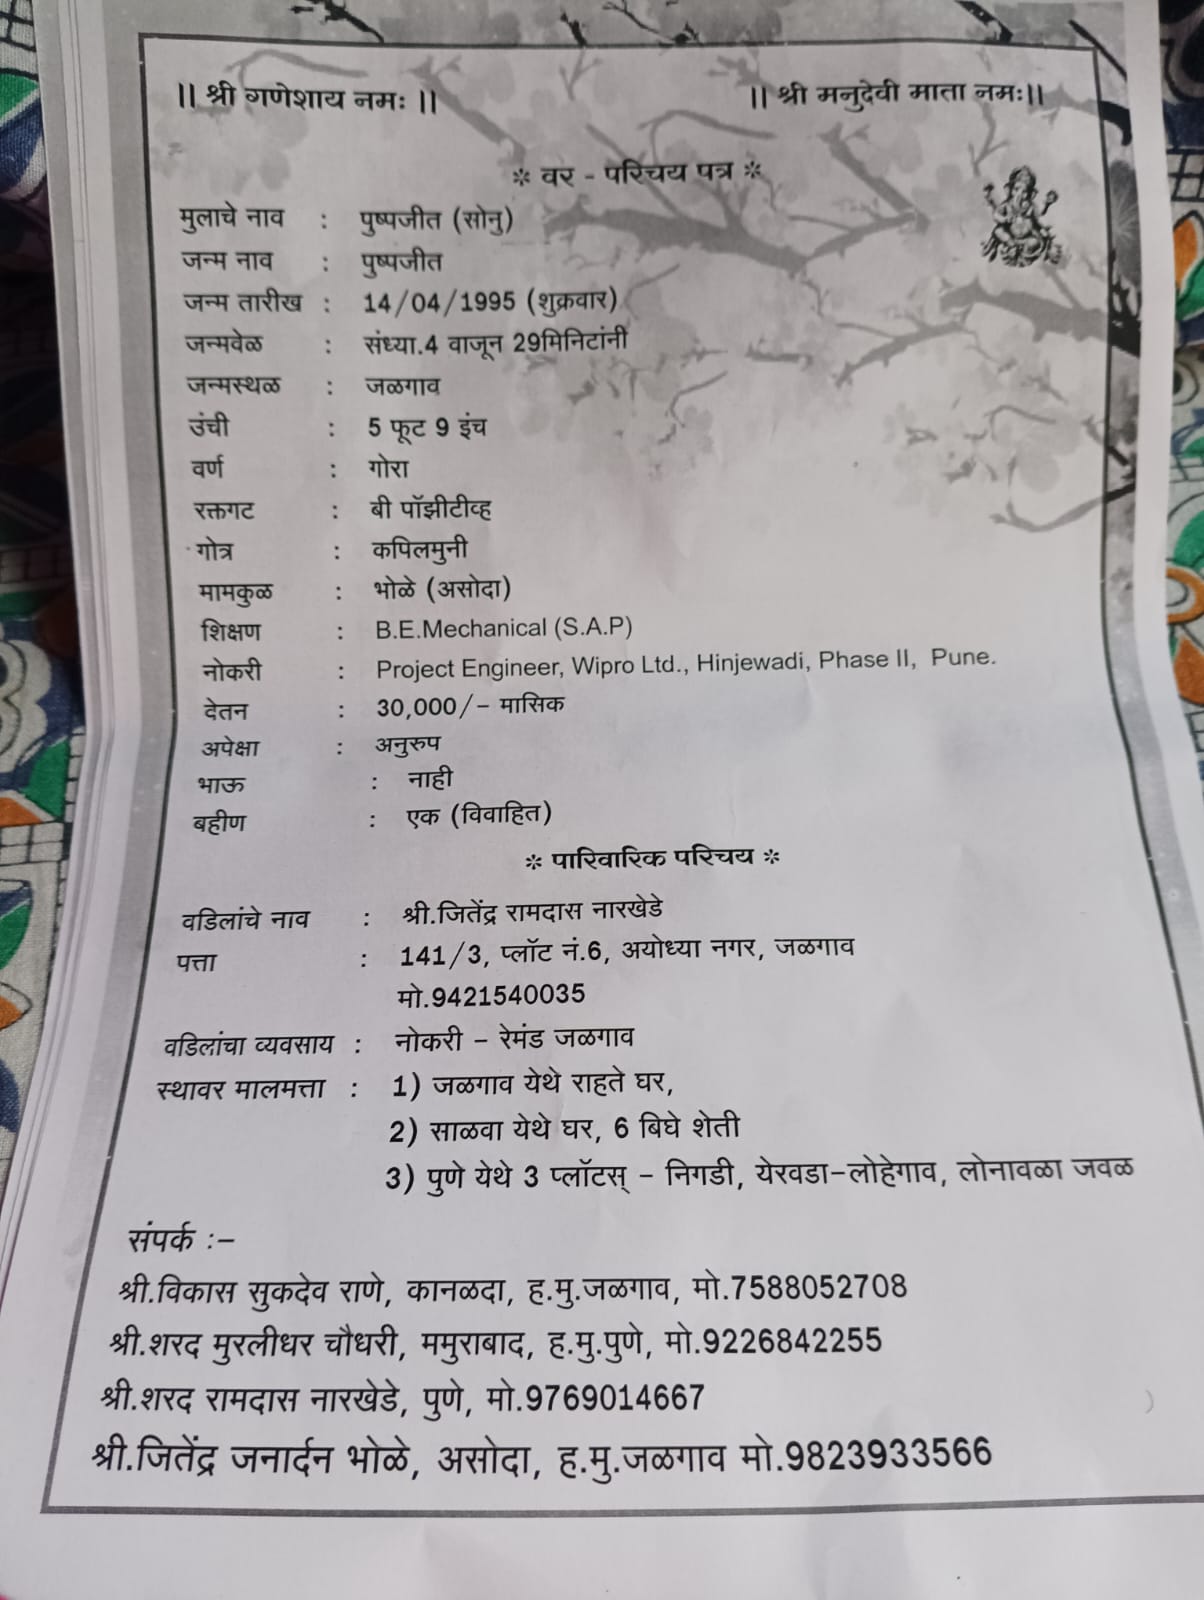 || श्री गणेशाय नमः ||
|| श्री मनुदेवी माता नमः||
* वर - परिचय पत्र *
मुलाचे नाव : पुष्पजीत (सोनु)
जन्म नाव : पुष्पजीत
जन्म तारीख : 14/04/1995 (शुक्रवार)
जन्मवेळ : संध्या.4 वाजून 29मिनिटांनी
जन्मस्थळ : जळगाव
उंची : 5 फूट 9 इंच
वर्ण : गोरा
रक्तगट : बी पॉझीटीव्ह
गोत्र : कपिलमुनी
मामकुळ : भोळे (असोदा)
शिक्षण : B.E.Mechanical (S.A.P)
नोकरी : Project Engineer, Wipro Ltd., Hinjewadi, Phase II, Pune.
वेतन : 30,000/- मासिक
अपेक्षा : अनुरुप
भाऊ : नाही
बहीण : एक (विवाहित)
* पारिवारिक परिचय *
वडिलांचे नाव : श्री.जितेंद्र रामदास नारखेडे
पत्ता : 141/3, प्लॉट नं.6, अयोध्या नगर, जळगाव
मो.9421540035
वडिलांचा व्यवसाय : नोकरी - रेमंड जळगाव
स्थावर मालमत्ता : 1) जळगाव येथे राहते घर,
2) साळवा येथे घर, 6 बिघे शेती
3) पुणे येथे 3 प्लॉटस् - निगडी, येरवडा-लोहेगाव, लोनावळा जवळ
संपर्क :-
श्री.विकास सुकदेव राणे, कानळदा, ह.मु.जळगाव, मो.7588052708
श्री.शरद मुरलीधर चौधरी, ममुराबाद, ह.मु.पुणे, मो.9226842255
श्री.शरद रामदास नारखेडे, पुणे, मो.9769014667
श्री.जितेंद्र जनार्दन भोळे, असोदा, ह.मु.जळगाव मो.9823933566